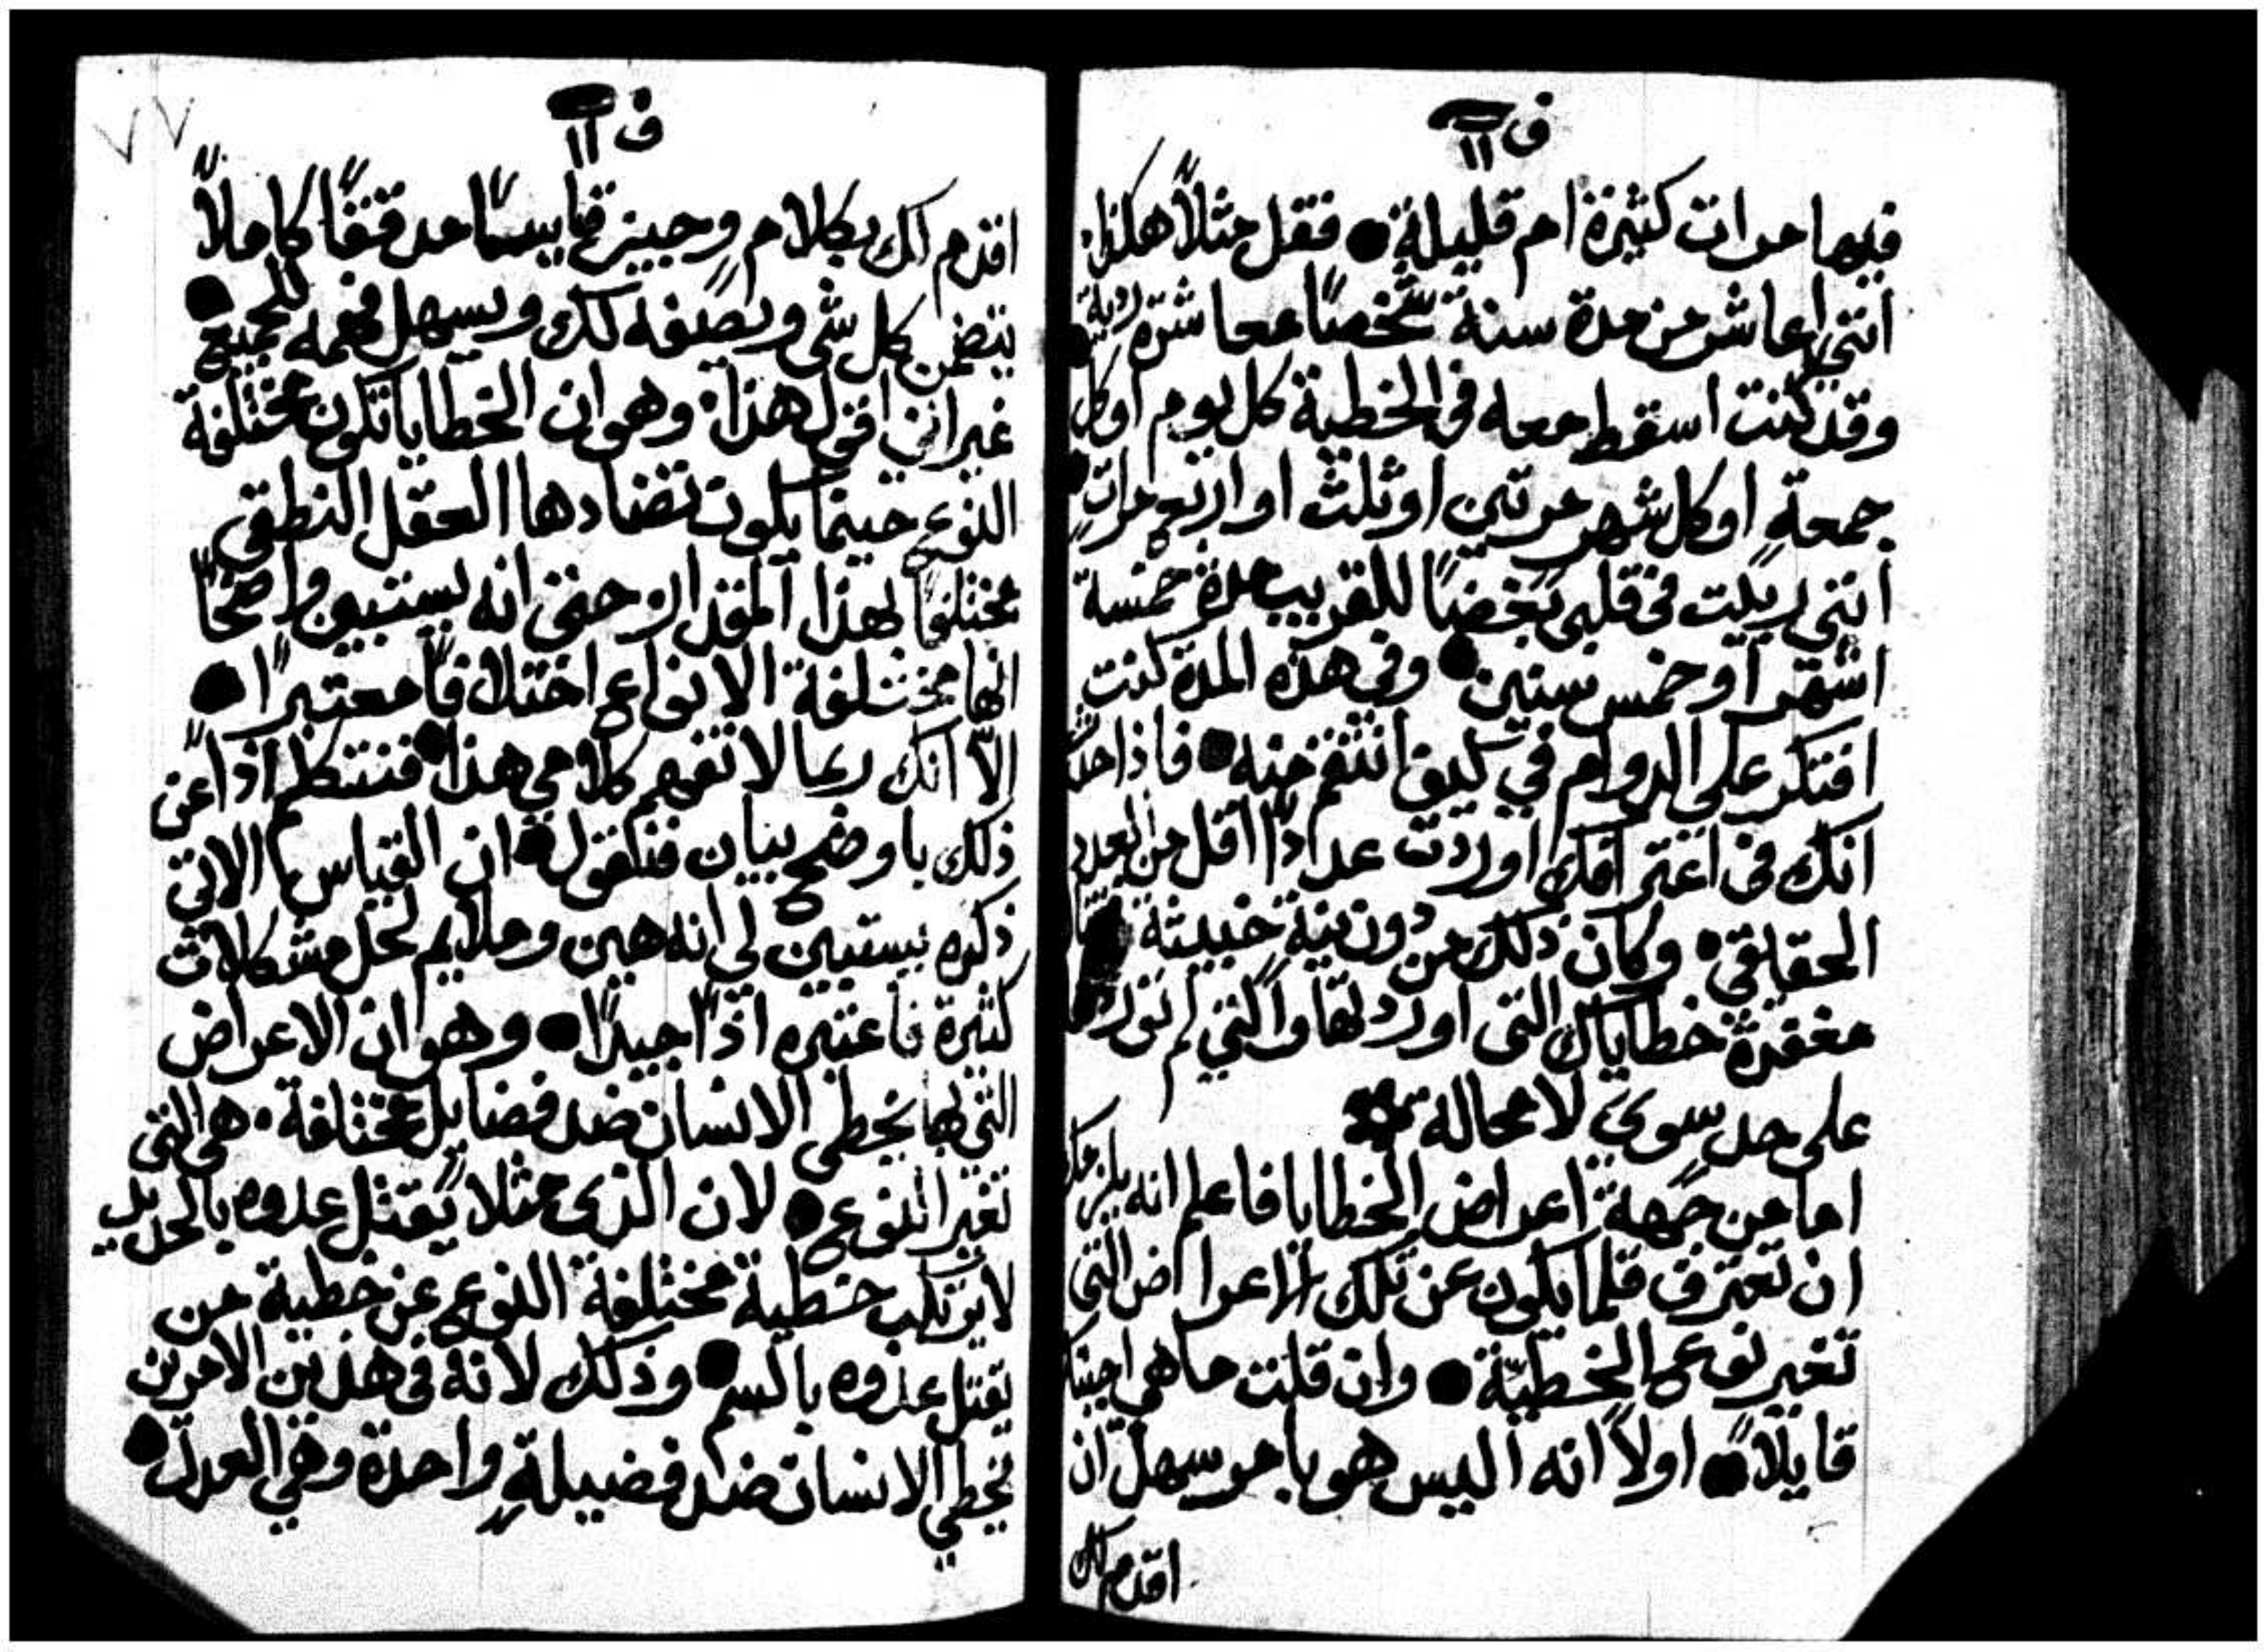 ف ١١
فيها مرات كثيرة ام قليلة • فقل مثلاً هكذا
انني اعاشر من مدة سنة شخصًا معاشرة ردية
وقد كنت اسقط معه في الخطية كل يوم او كل
جمعةٍ او كل شهر مرتين او ثلث او اربع مرات
انني ربيت في قلبي بغضًا للقريب مدة خمسة
اشهر او خمس سنين • وفي هذه المدة كنت
افتكر على الدوام في كيف انتقم منه • فاذا
انك في اعترافك اوردت عددًا اقل من العدد
الحقاقي • وكان ذلك من دون نية خبيثة
مغفرة خطاياك التي اوردتها والتي لم تورد
على حد سوي لا محالة
اما من جهة اعراض الخطايا فاعلم انه يلزمك
ان تعترف قلما يكون عن تلك الاعراض التي
تغير نوع الخطية • وان قلت ما هي اجبتك
قايلاً • اولاً انه اليس هو بامر سهل ان
اقدم لك
٧٧
ف ١١
اقدم لك بكلام وجيز قايسًا مدققًا كاملاً
يتضمن كل شي ويصيفه لك ويسهل فهمه للجميع •
غير انني اقول هذا • وهو ان الخطايا تكون مختلفة
النوع حينما يكون تضادها العقل النطقي
مختلفًا بهذا المقدار حتى انه يستبين واضحًا
انها مختلفة الانواع اختلافًا معتبرًا •
الاّ انك ربما لا تفهم كلامي هذا • فنتكلم اذًا عن
ذلك باوضح بيان فنقول • ان القياس الاتي
ذكره يستبين لي انه هين وملايم لحل مشكلات
كثيرة فاعتبره اذًا جيدًا • وهو ان الاعراض
التي بها يخطي الانسان ضد فضايل مختلفة • هي التي
تغير النوع • لان الذي مثلاً يقتل عدوه بالحديد
لا يرتكب خطية مختلفة النوع عن خطية من
يقتل عدوه بالسم • وذلك لانه في هذين الامرين
يخطي الانسان ضد فضيلةٍ واحدة وهي العدل •